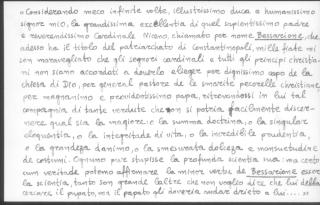 "Considerando meco infinite volte, illustrissimo duca e humanissimo
signor mio, la grandissima excellentia di quel sapientissimo padre
e reverendissimo Cardinale Niceno, chiamato per nome Bessarione, che
adesso ha il titolo del patriarchato di Constantinopoli, mille fiate mi
son maravegliato che gli segnori cardinali e tutti gli principi christia-
ni non siano accordati a doverlo elleger per dignissimo capo de la
chiesa di Dio, per general pastore de le smarite pecorelle christiane,
per magnanimo e providentissimo papa, ritrovandosi in lui tal
compagnia di tante verdute che non si potria facilmente discer-
nere qual sia la magiore: o la summa doctrina, o la singular
eloquentia, o la integritade di vita, o la incredibile prudentia,
o la grandeza danimo, o la smesurata dolceza e mansuetudine
de costumi. Ognuno pur stupisse la profunda scientia sua; ma certo
cum veritade potemo affirmare la minor vertu de Bessarione esser
la scientia, tanto son grande laltre che non voglio dire che lui debba
il papato, ma il papato gli doveria andar drieto a lui....."